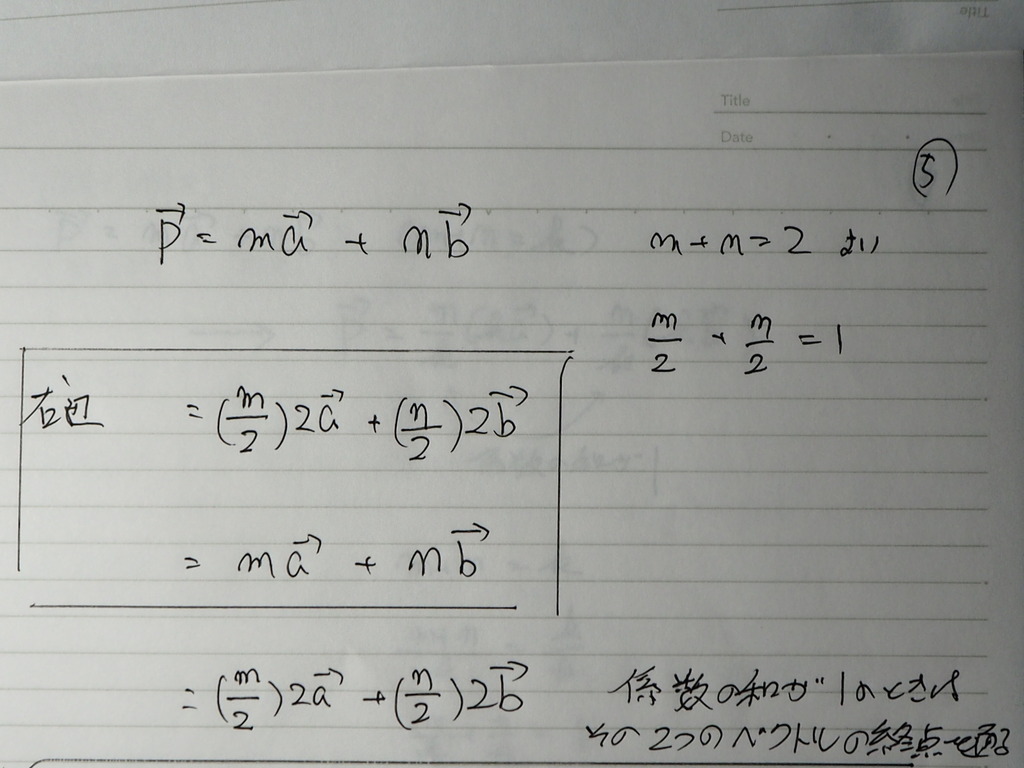 Title
Date
⑤
p⃗ = ma⃗ + nb⃗ m + n = 2 より
m/2 + n/2 = 1
右辺 = (m/2)2a⃗ + (n/2)2b⃗
= ma⃗ + nb⃗
= (m/2)2a⃗ + (n/2)2b⃗ 係数の和が1のときは
その2つのベクトルの終点を通る